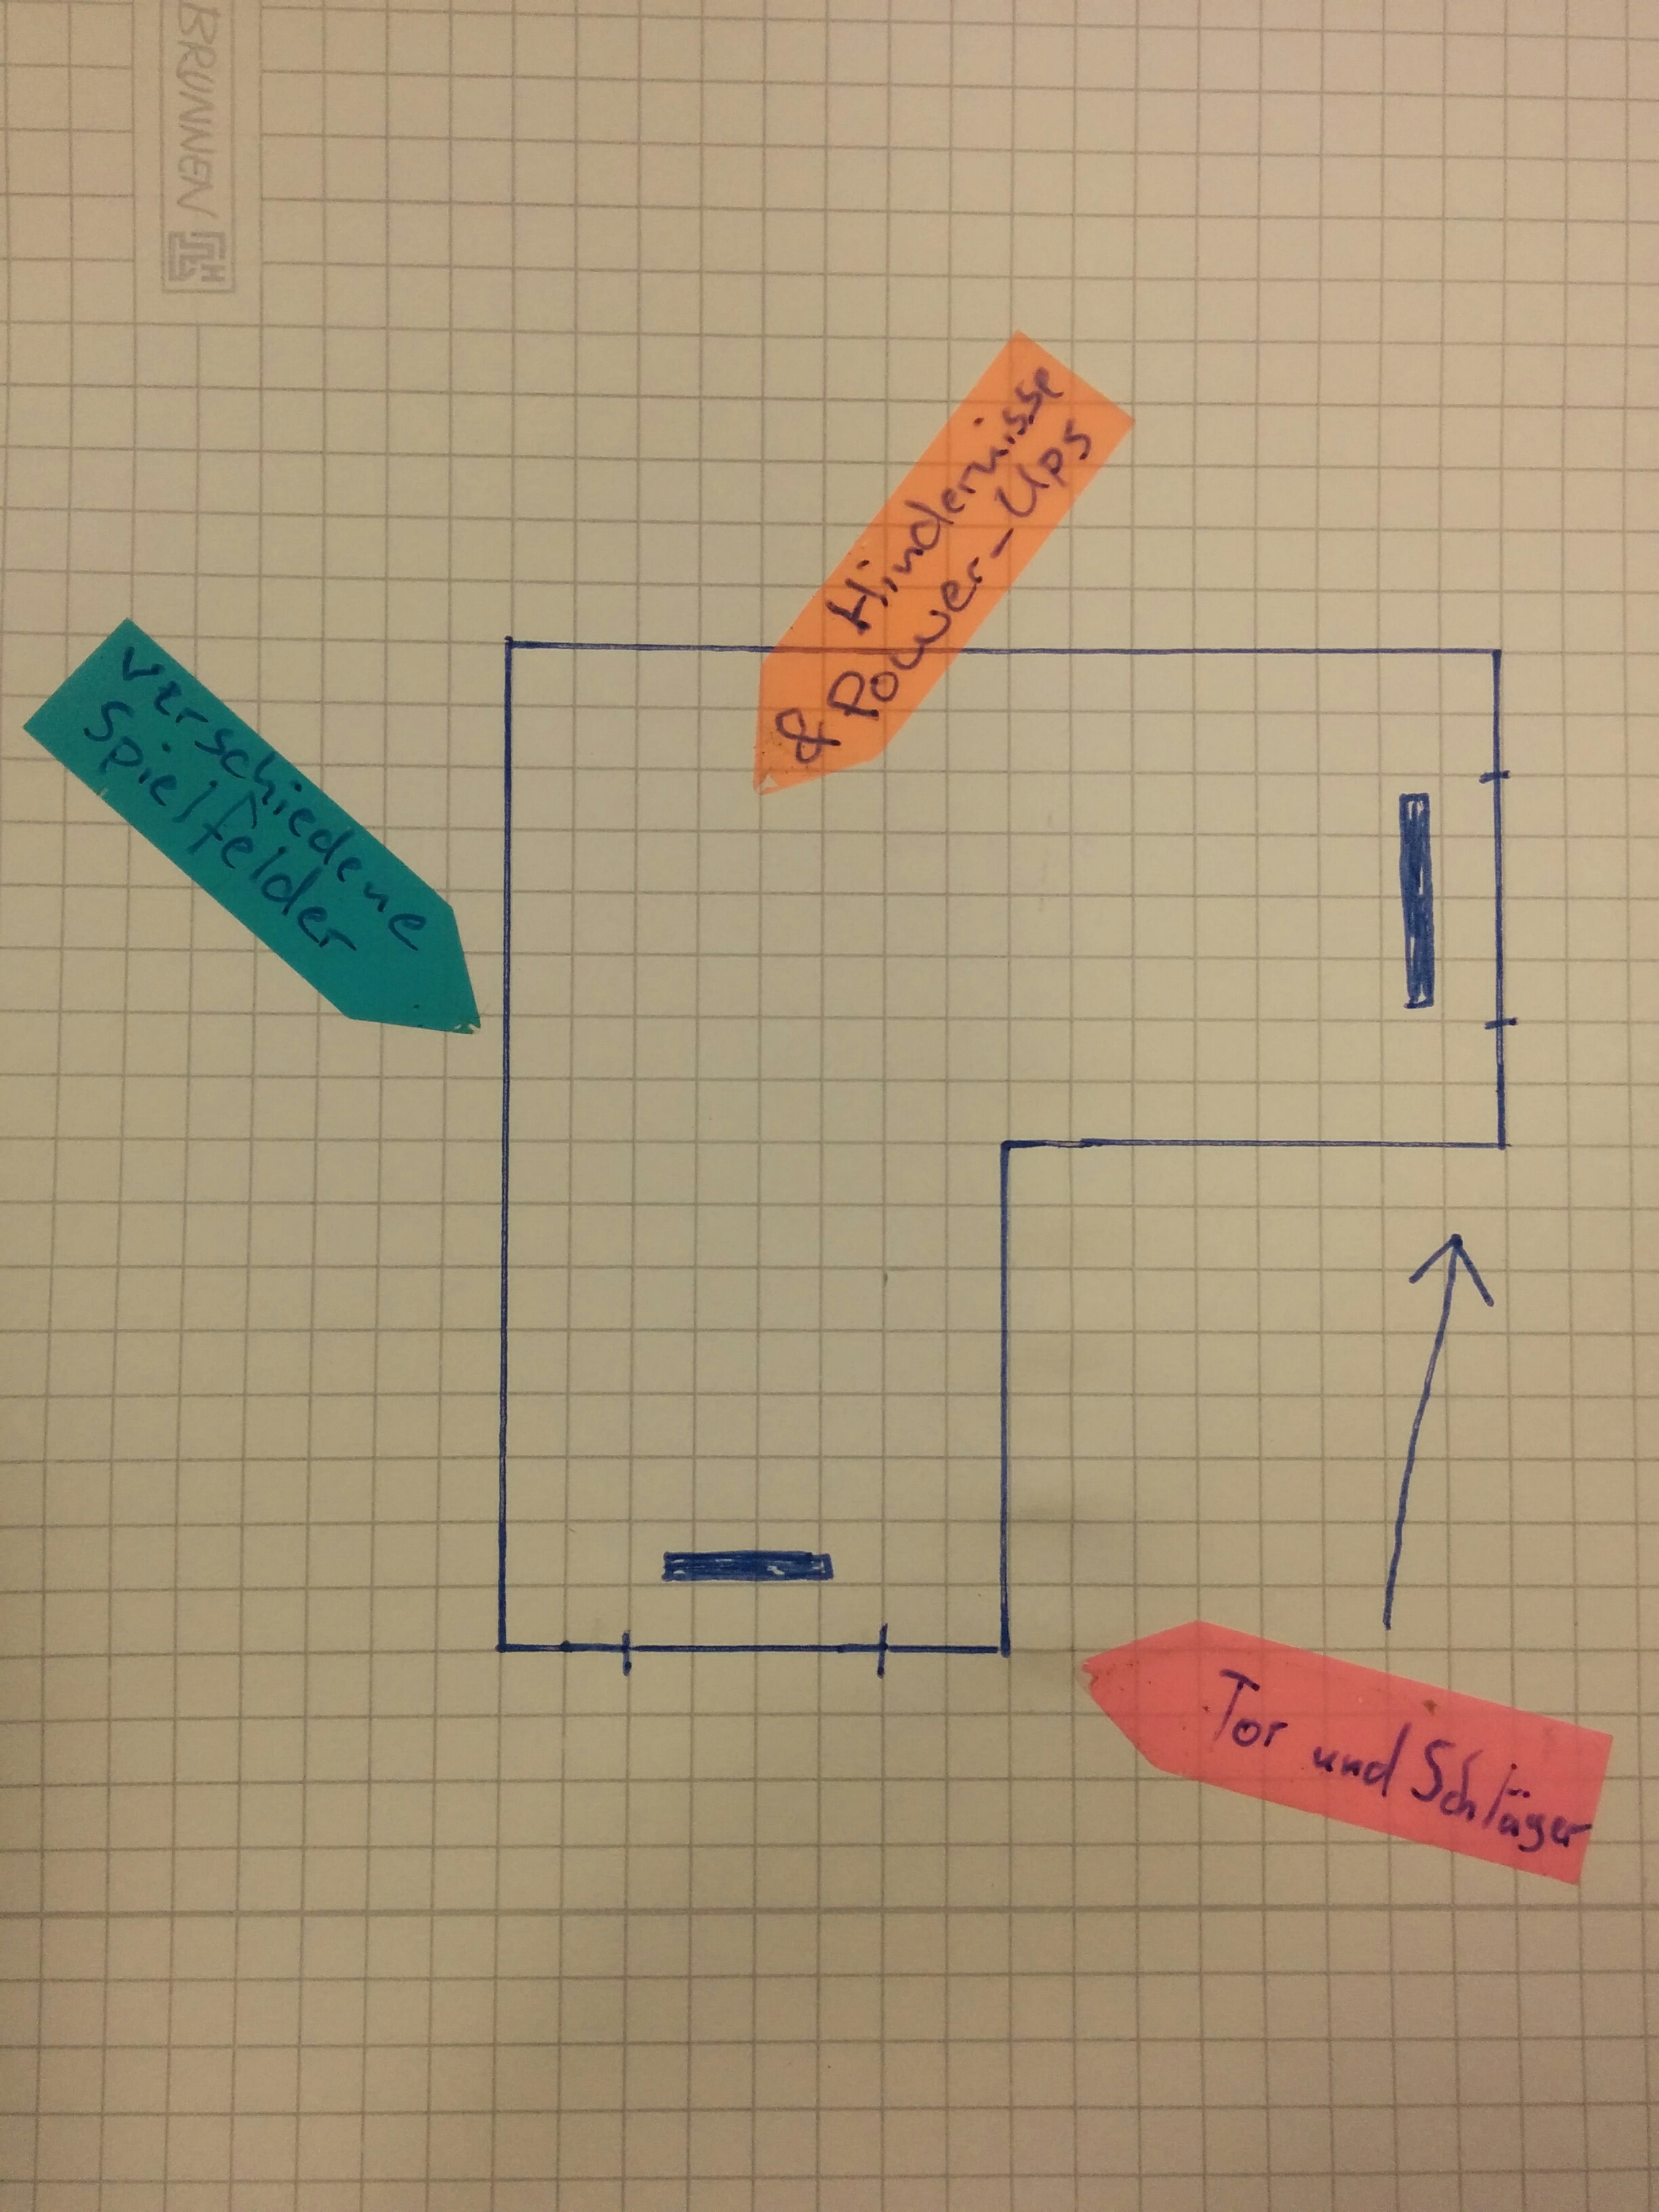 BRUNNEN
Hindernisse
& Power-Ups
verschiedene
Spielfelder
Tor und Schläger